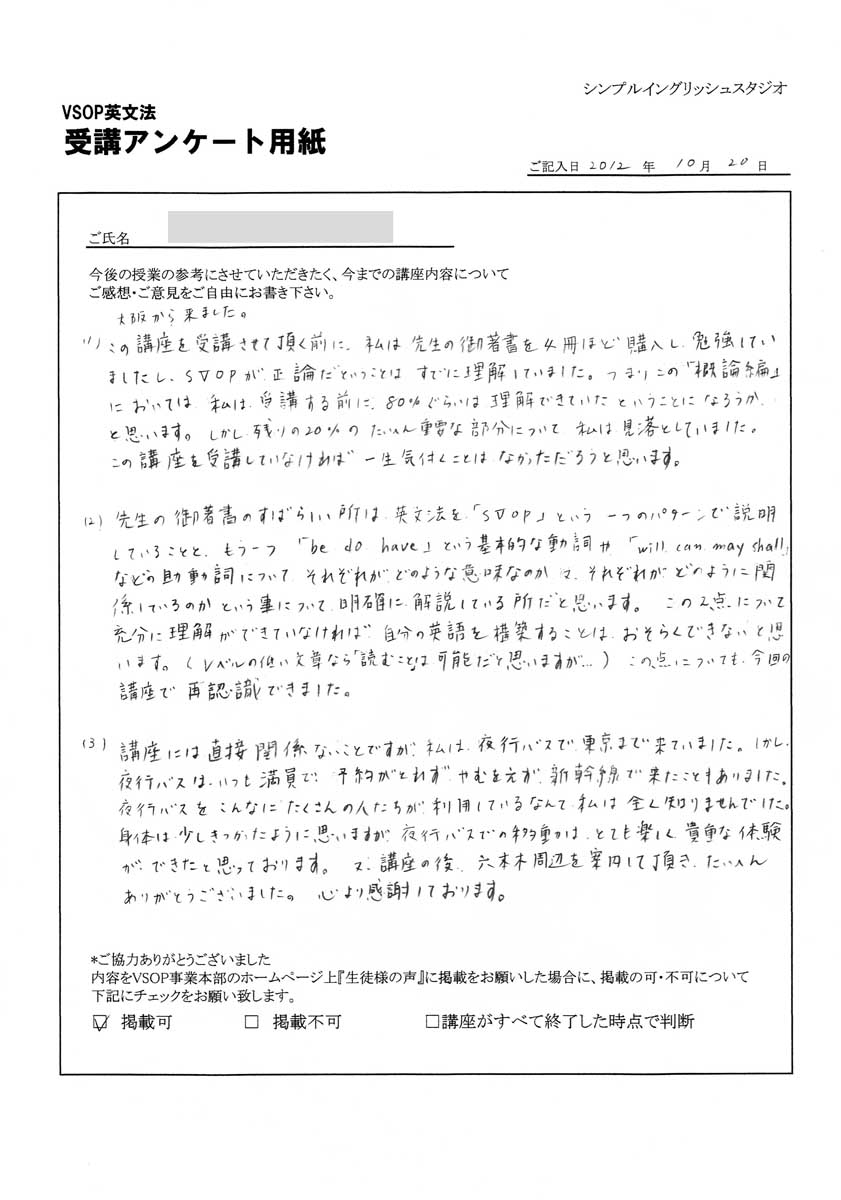 シンプルイングリッシュスタジオ
VSOP英文法
受講アンケート用紙
ご記入日 2012 年 10 月 20 日
ご氏名
今後の授業の参考にさせていただきたく、今までの講座内容について
ご感想・ご意見をご自由にお書き下さい。
大阪から来ました。
(1) この講座を受講させて頂く前に、私は先生の御著書を4冊ほど購入し、勉強してい
ましたし、SVOPが正論だということはすでに理解していました。つまりこの「概論編」
においては、私は、受講する前に、80%ぐらいは理解できていたということになろうか、
と思います。しかし残りの20%のたいへん重要な部分について、私は見落としていました。
この講座を受講していなければ一生気付くことはなかっただろうと思います。
(2) 先生の御著書のすばらしい所は、英文法を、「SVOP」という一つのパターンで説明
していることと、もう一つ「be do have」という基本的な動詞や「will can may shall」
などの助動詞について、それぞれがどのような意味なのか、又、それぞれがどのように関
係しているのかという事について、明確に解説している所だと思います。この2点について
充分に理解ができていなければ、自分の英語を構築することは、おそらくできないと思
います。(レベルの低い文章なら「読む」ことは可能だと思いますが…) この点についても、今回の
講座で再認識できました。
(3) 講座には直接関係ないことですが、私は、夜行バスで、東京まで来ていました。しかし、
夜行バスは、いつも満員で、予約がとれず、やむをえず、新幹線で来たこともありました。
夜行バスをこんなにたくさんの人たちが利用しているなんて、私は全く知りませんでした。
身体は少しきつかったように思いますが、夜行バスでの移動は、とても楽しく貴重な体験
ができたと思っております。又、講座の後、六本木周辺を案内して頂き、たいへん
ありがとうございました。心より感謝しております。
*ご協力ありがとうございました
内容をVSOP事業本部のホームページ上『生徒様の声』に掲載をお願いした場合に、掲載の可・不可について
下記にチェックをお願い致します。
☑ 掲載可 □ 掲載不可 □講座がすべて終了した時点で判断